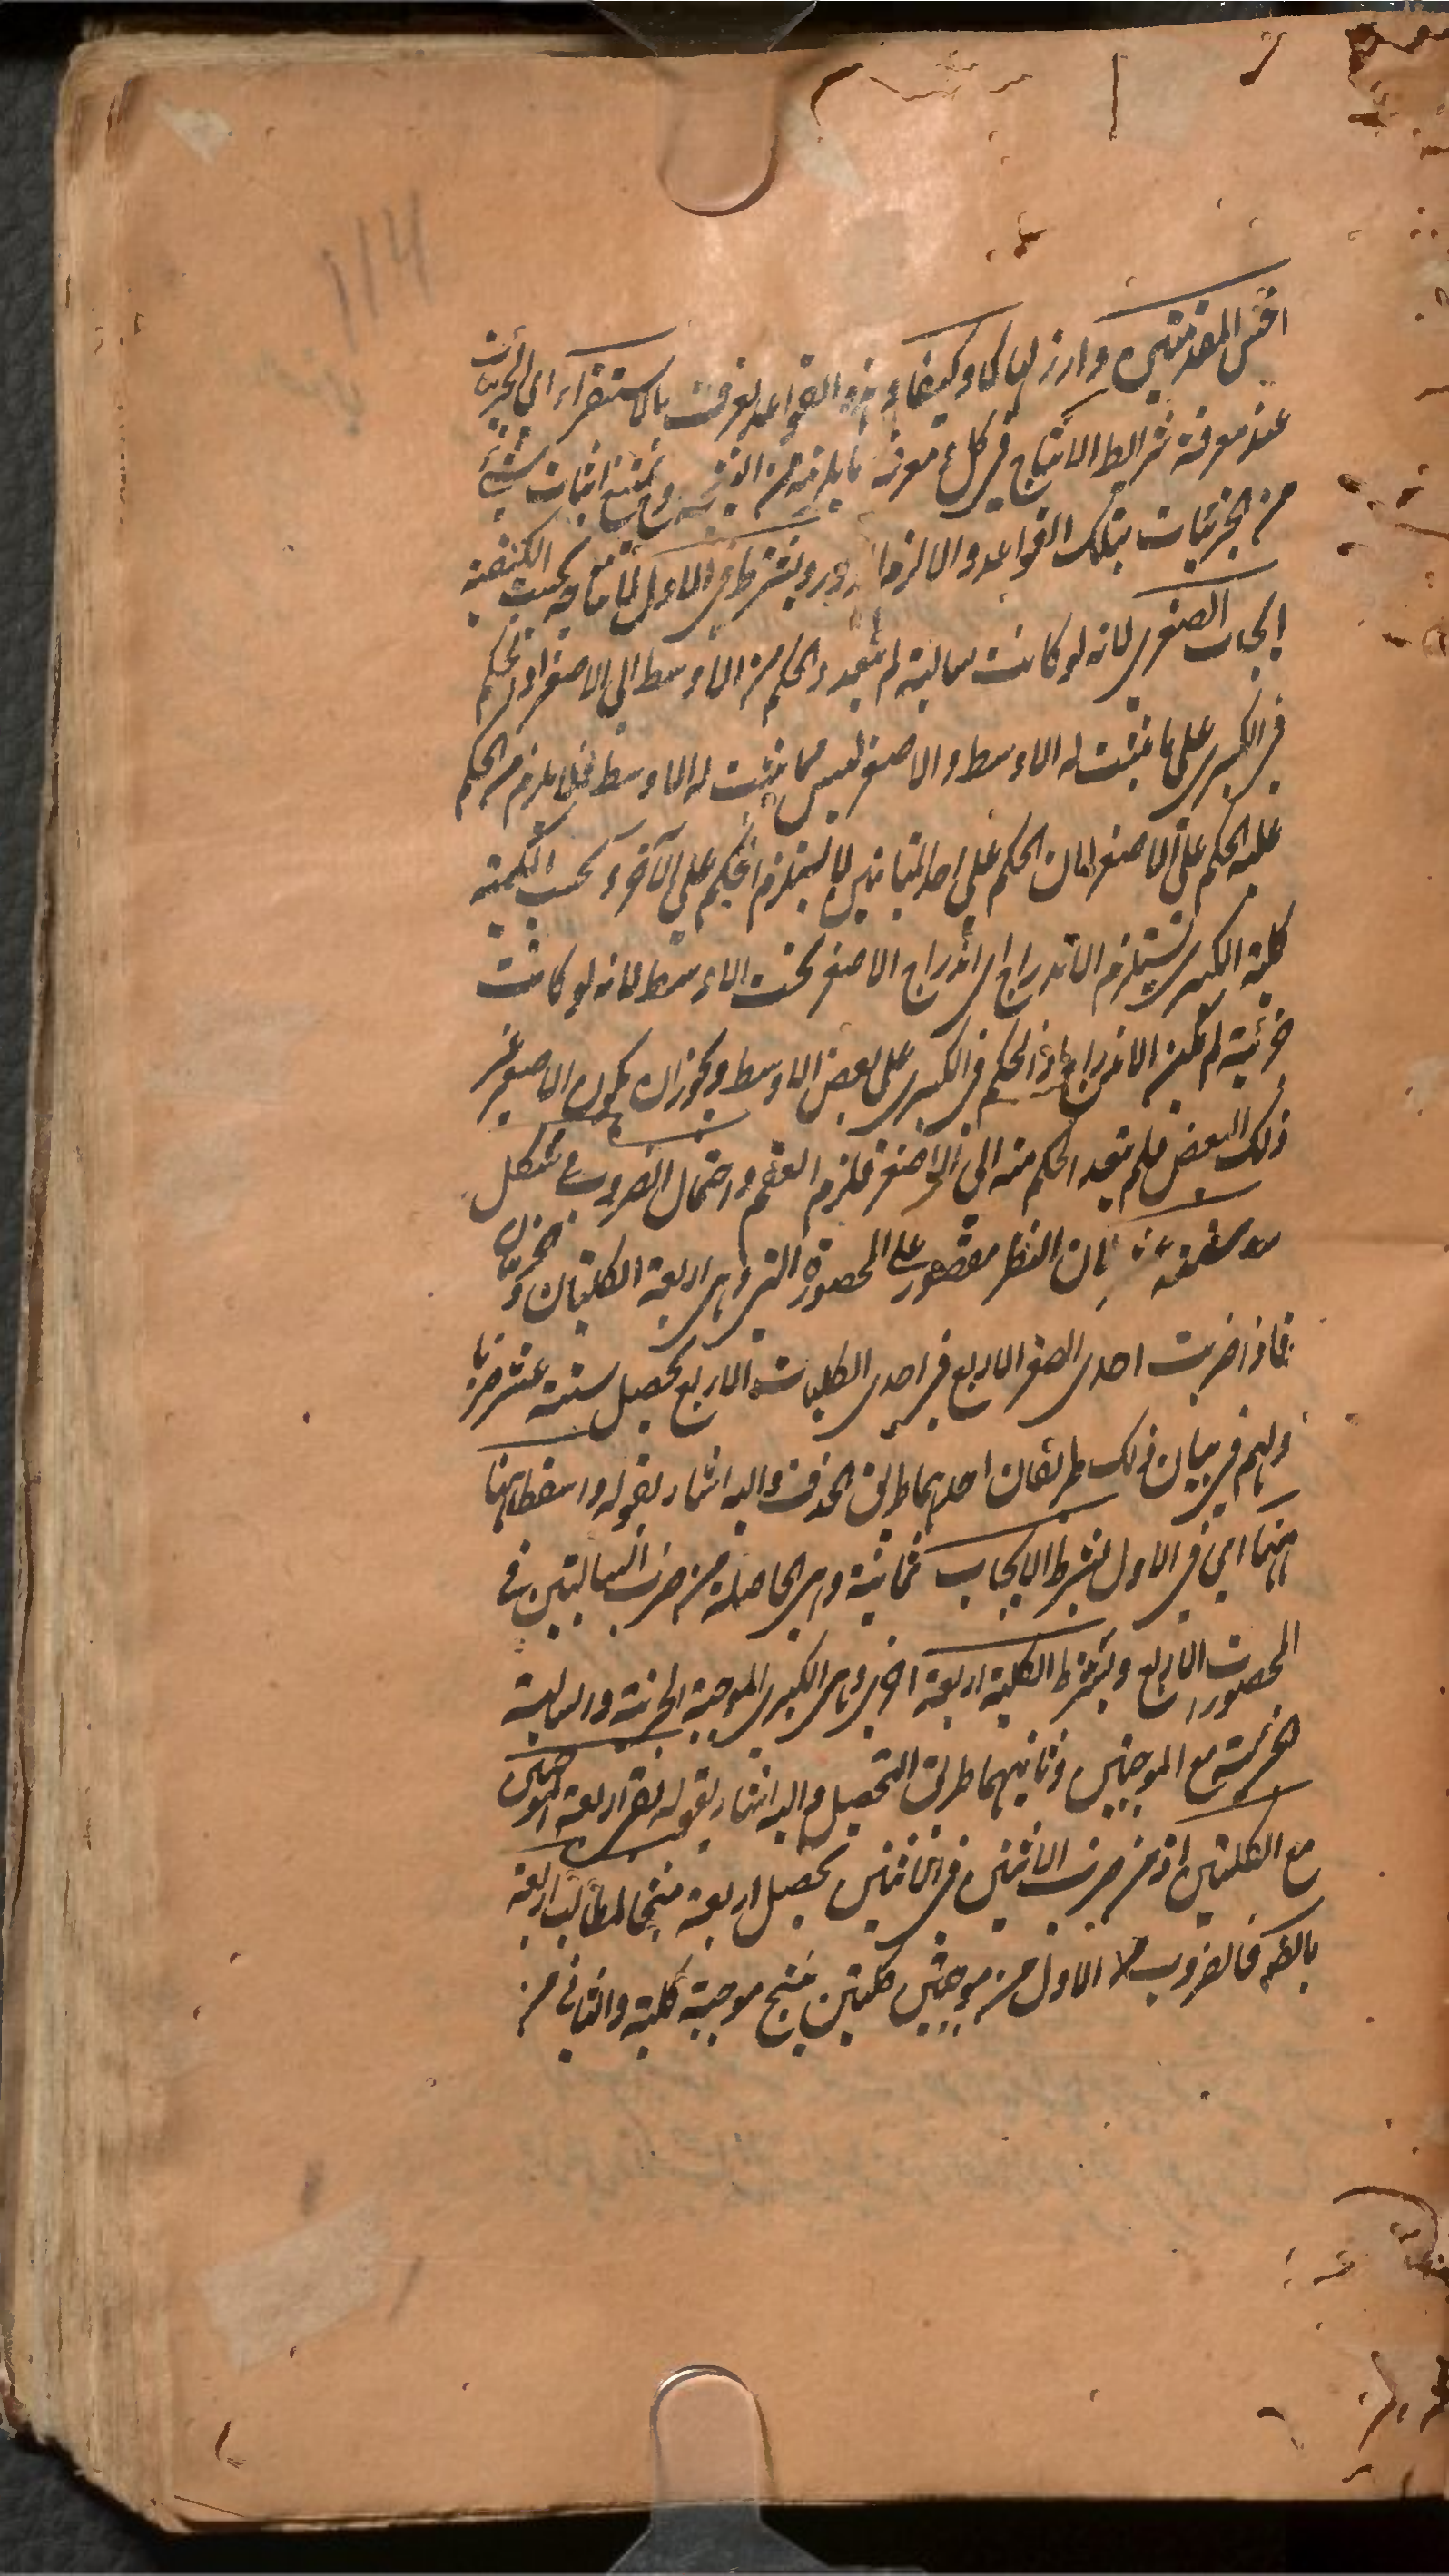 114
اخس المقدمتين وارزلها كما وكيفا وهذه القواعد يعرف بالاستقراء اي الجزئيات
عند معرفة شرايط الانتاج في كل ومعرفة ما يلزمه من النتيجة ويمتنع اثبات شئ
من الجزئيات بتلك القواعد والا لزم الدور ويشترط في الاول لانتاجه بحسب الكيفية
ايجاب الصغرى لانه لو كانت سالبة لم يتعد الحكم من الاوسط الى الاصغر اذ الحكم
في الكبرى على ما يثبت له الاوسط والاصغر ليس مما يثبت له الاوسط فلا يلزم من الحكم
عليه الحكم على الاصغر لان الحكم على احد المتباينين لا يستلزم الحكم على الآخر وبحسب الكمية
كلية الكبرى ليستلزم الاندراج اي اندراج الاصغر تحت الاوسط لانه لو كانت
جزئية لم يكن الاندراج اذ الحكم في الكبرى على بعض الاوسط ويجوز ان يكون الاصغر غير
ذلك البعض فلم يتعد الحكم منه الى الاصغر فلزم العقم واحتمال الضروب في شكل
ستة عشر لان النظر مقصور على المحصورة التي هي اربعة الكليتان والجزئيتان
فاذا ضربت احدى الصغر الاربع في احدى الكليات الاربع يحصل ستة عشر ضربا
ولهم في بيان ذلك طريقان احدهما طريق الحذف واليه اشار بقوله واسقط ههنا
ههنا اي في الاول بشرط الايجاب ثمانية وهي الحاصلة من ضرب السالبتين في
المحصورات الاربع وبشرط الكلية اربعة اخرى وهي الكبرى الموجبة الجزئية والسالبة
الجزئية مع الموجبتين وثانيهما طريق التحصيل واليه اشار بقوله بقى اربعة الموجبتين
مع الكليتين اذ من ضرب الاثنين في الاثنين يحصل اربعة منتجا لمطالب اربعة
بالضرورة فالضروب الاول من موجبتين كليتين ينتج موجبة كلية والثاني من